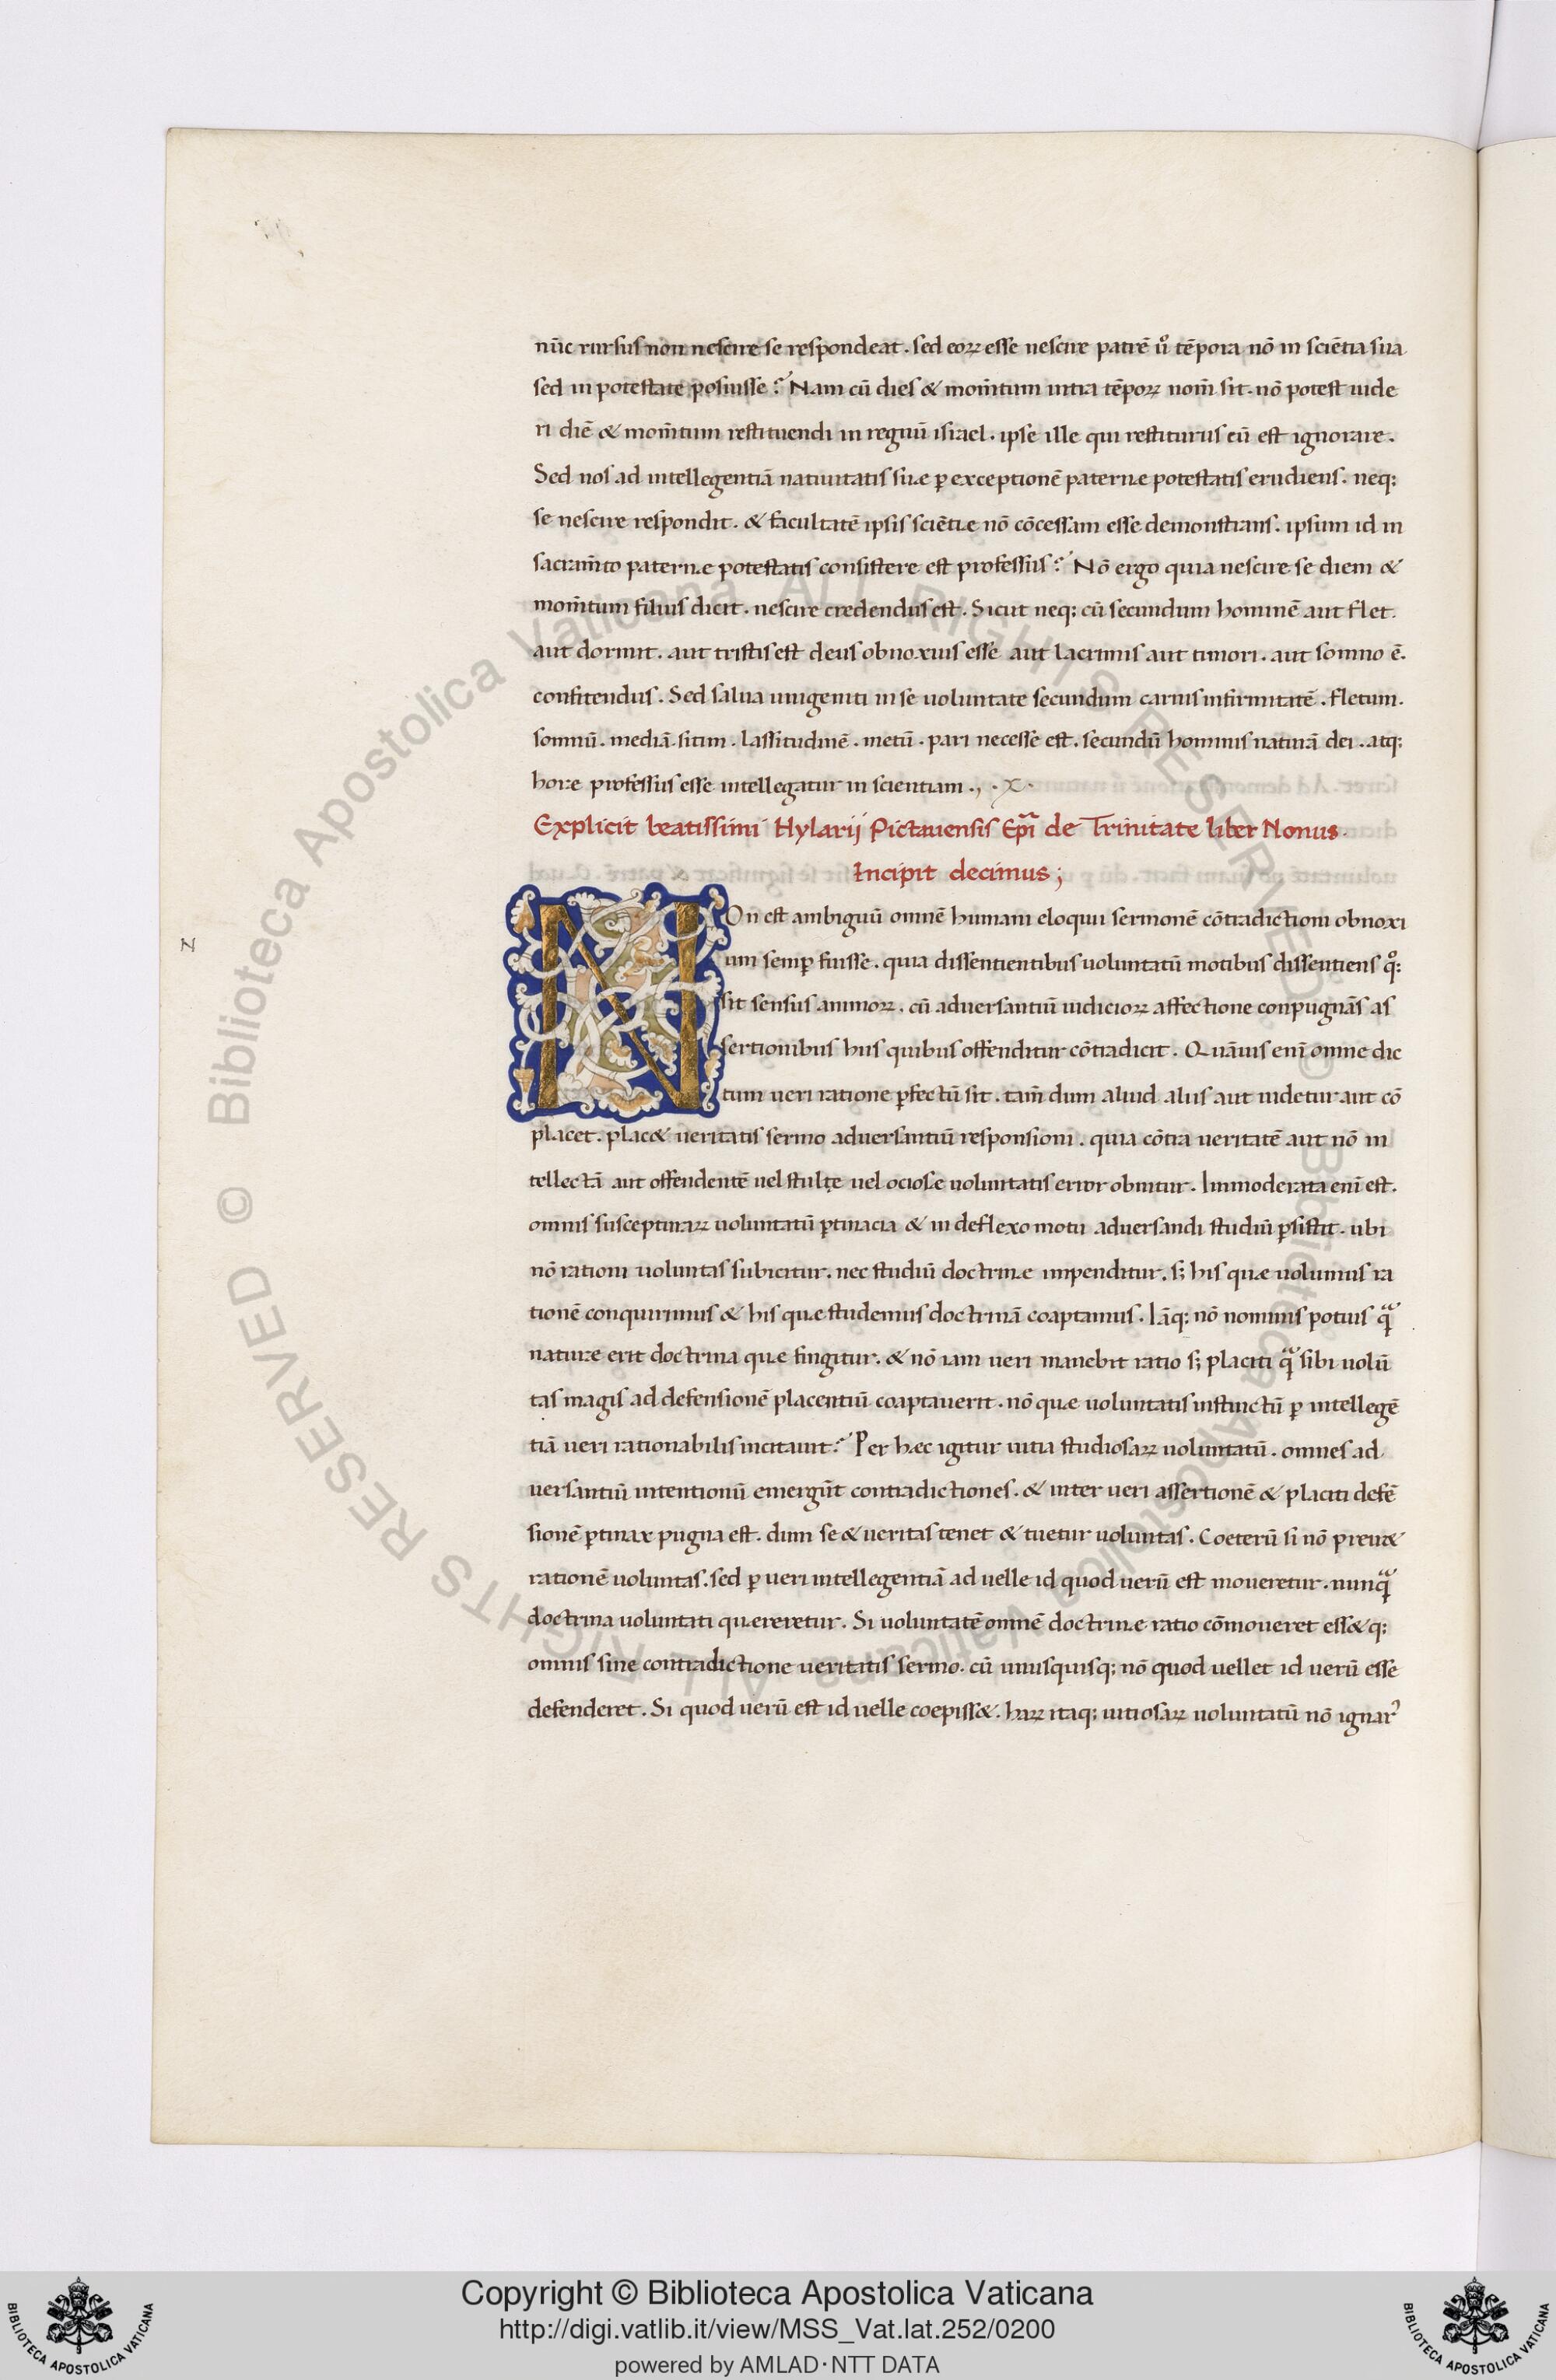 nūc rursus non nescire se respondeat . sed eoꝝ esse nescire patrē u̾o tēpora nō in sciētia sua
sed in potestate posuisse ? Nam cū dies & mom̄tum intra tēpoꝝ nom̄ sit . nō potest uide
ri diē & mom̄tum restituendi in regnū israel . ipse ille qui restiturus eū est ignorare .
Sed nos ad intellegentiā natiuitatis suæ ꝑ exceptionē paternæ potestatis erudiens . neq;
se nescire respondit . & facultatē ipsis sciētiæ nō cōcessam esse demonstrans . ipsum id in
sacram̄to paternæ potestatis consistere est professus ? Nō ergo quia nescire se diem &
mom̄tum filius dicit . nescire credendus est . Sicut neq; cū secundum hominē aut flet .
aut dormit . aut tristis est deus obnoxius esse aut lacrimis aut timori . aut somno ē .
confitendus . Sed salua unigeniti in se uoluntate secundum carnis infirmitatē . fletum .
somnū . mediā . sitim . lassitudinē . metū . pari necesse est . secundū hominis naturā dei . atq;
hore professus esse intellegatur in scientiam . , . X .
Explicit beatissimi Hylarij Pictauensis Ep̄i de Trinitate liber Nonus .
Incipit decimus ;
N
NOn est ambiguū omnē humani eloquii sermonē cōtradictioni obnoxi
um semꝑ fuisse . quia dissentientibus uoluntatū motibus dissentiens qͦ;
sit sensus animoꝝ . cū aduersantiū iudicioꝝ affectione conpugnās as
sertionibus hiis quibus offenditur cōtradicit . Quāuis eni omne dic
tum ueri ratione ꝑfectū sit . tam̄ dum aliud aliis aut uidetur aut cō
placet . plac& ueritatis sermo aduersantiū responsioni . quia cōtra ueritatē aut nō in
tellectā aut offendentē uel stulte uel ociosæ uoluntatis error obnitur . Immoderata eni est .
omnis susceptaraꝝ uoluntatū ꝑtinacia & in deflexo motu aduersandi studiū ꝑsistit . ubi
nō rationi uoluntas subicitur . nec studiū doctrinæ impenditur . s; his quæ uolumus ra
tionē conquirimus & his quæ studemus doctrinā coaptamus . Iāq; nō nominis potius qᷓ
naturæ erit doctrina quæ fingitur . & nō iam ueri manebit ratio s; placiti qᷓ sibi uolū
tas magis ad defensionē placentiū coaptauerit . nō quæ uoluntatis instinctū ꝑ intellegē
tiā ueri rationabilis incitauit ? Per hæc igitur uitia studiosaꝝ uoluntatū . omnes ad
uersantiū intentionū emergūt contradictiones . & inter ueri assertionē & placiti defē
sionē ꝑtinax pugna est . dum se & ueritas tenet & tuetur uoluntas . Coeterū si nō preui&
rationē uoluntas . sed ꝑ ueri intellegentiā ad uelle id quod uerū est moueretur . nunqᷓ
doctrina uoluntati quæreretur . Si uoluntatē omnē doctrinæ ratio cōmoueret ess& q;
omnis sine contradictione ueritatis sermo . cū unusquisq; nō quod uellet id uerū esse
defenderet . Si quod uerū est id uelle coepiss& . haꝝ itaq; uitiosaꝝ uoluntatū nō ignar᾽
© Biblioteca Apostolica Vaticana ALL RIGHTS RESERVED
© Biblioteca Apostolica Vaticana ALL RIGHTS RESERVED
Copyright © Biblioteca Apostolica Vaticana
http://digi.vatlib.it/view/MSS_Vat.lat.252/0200
powered by AMLAD·NTT DATA
BIBLIOTECA APOSTOLICA VATICANA
BIBLIOTECA APOSTOLICA VATICANA